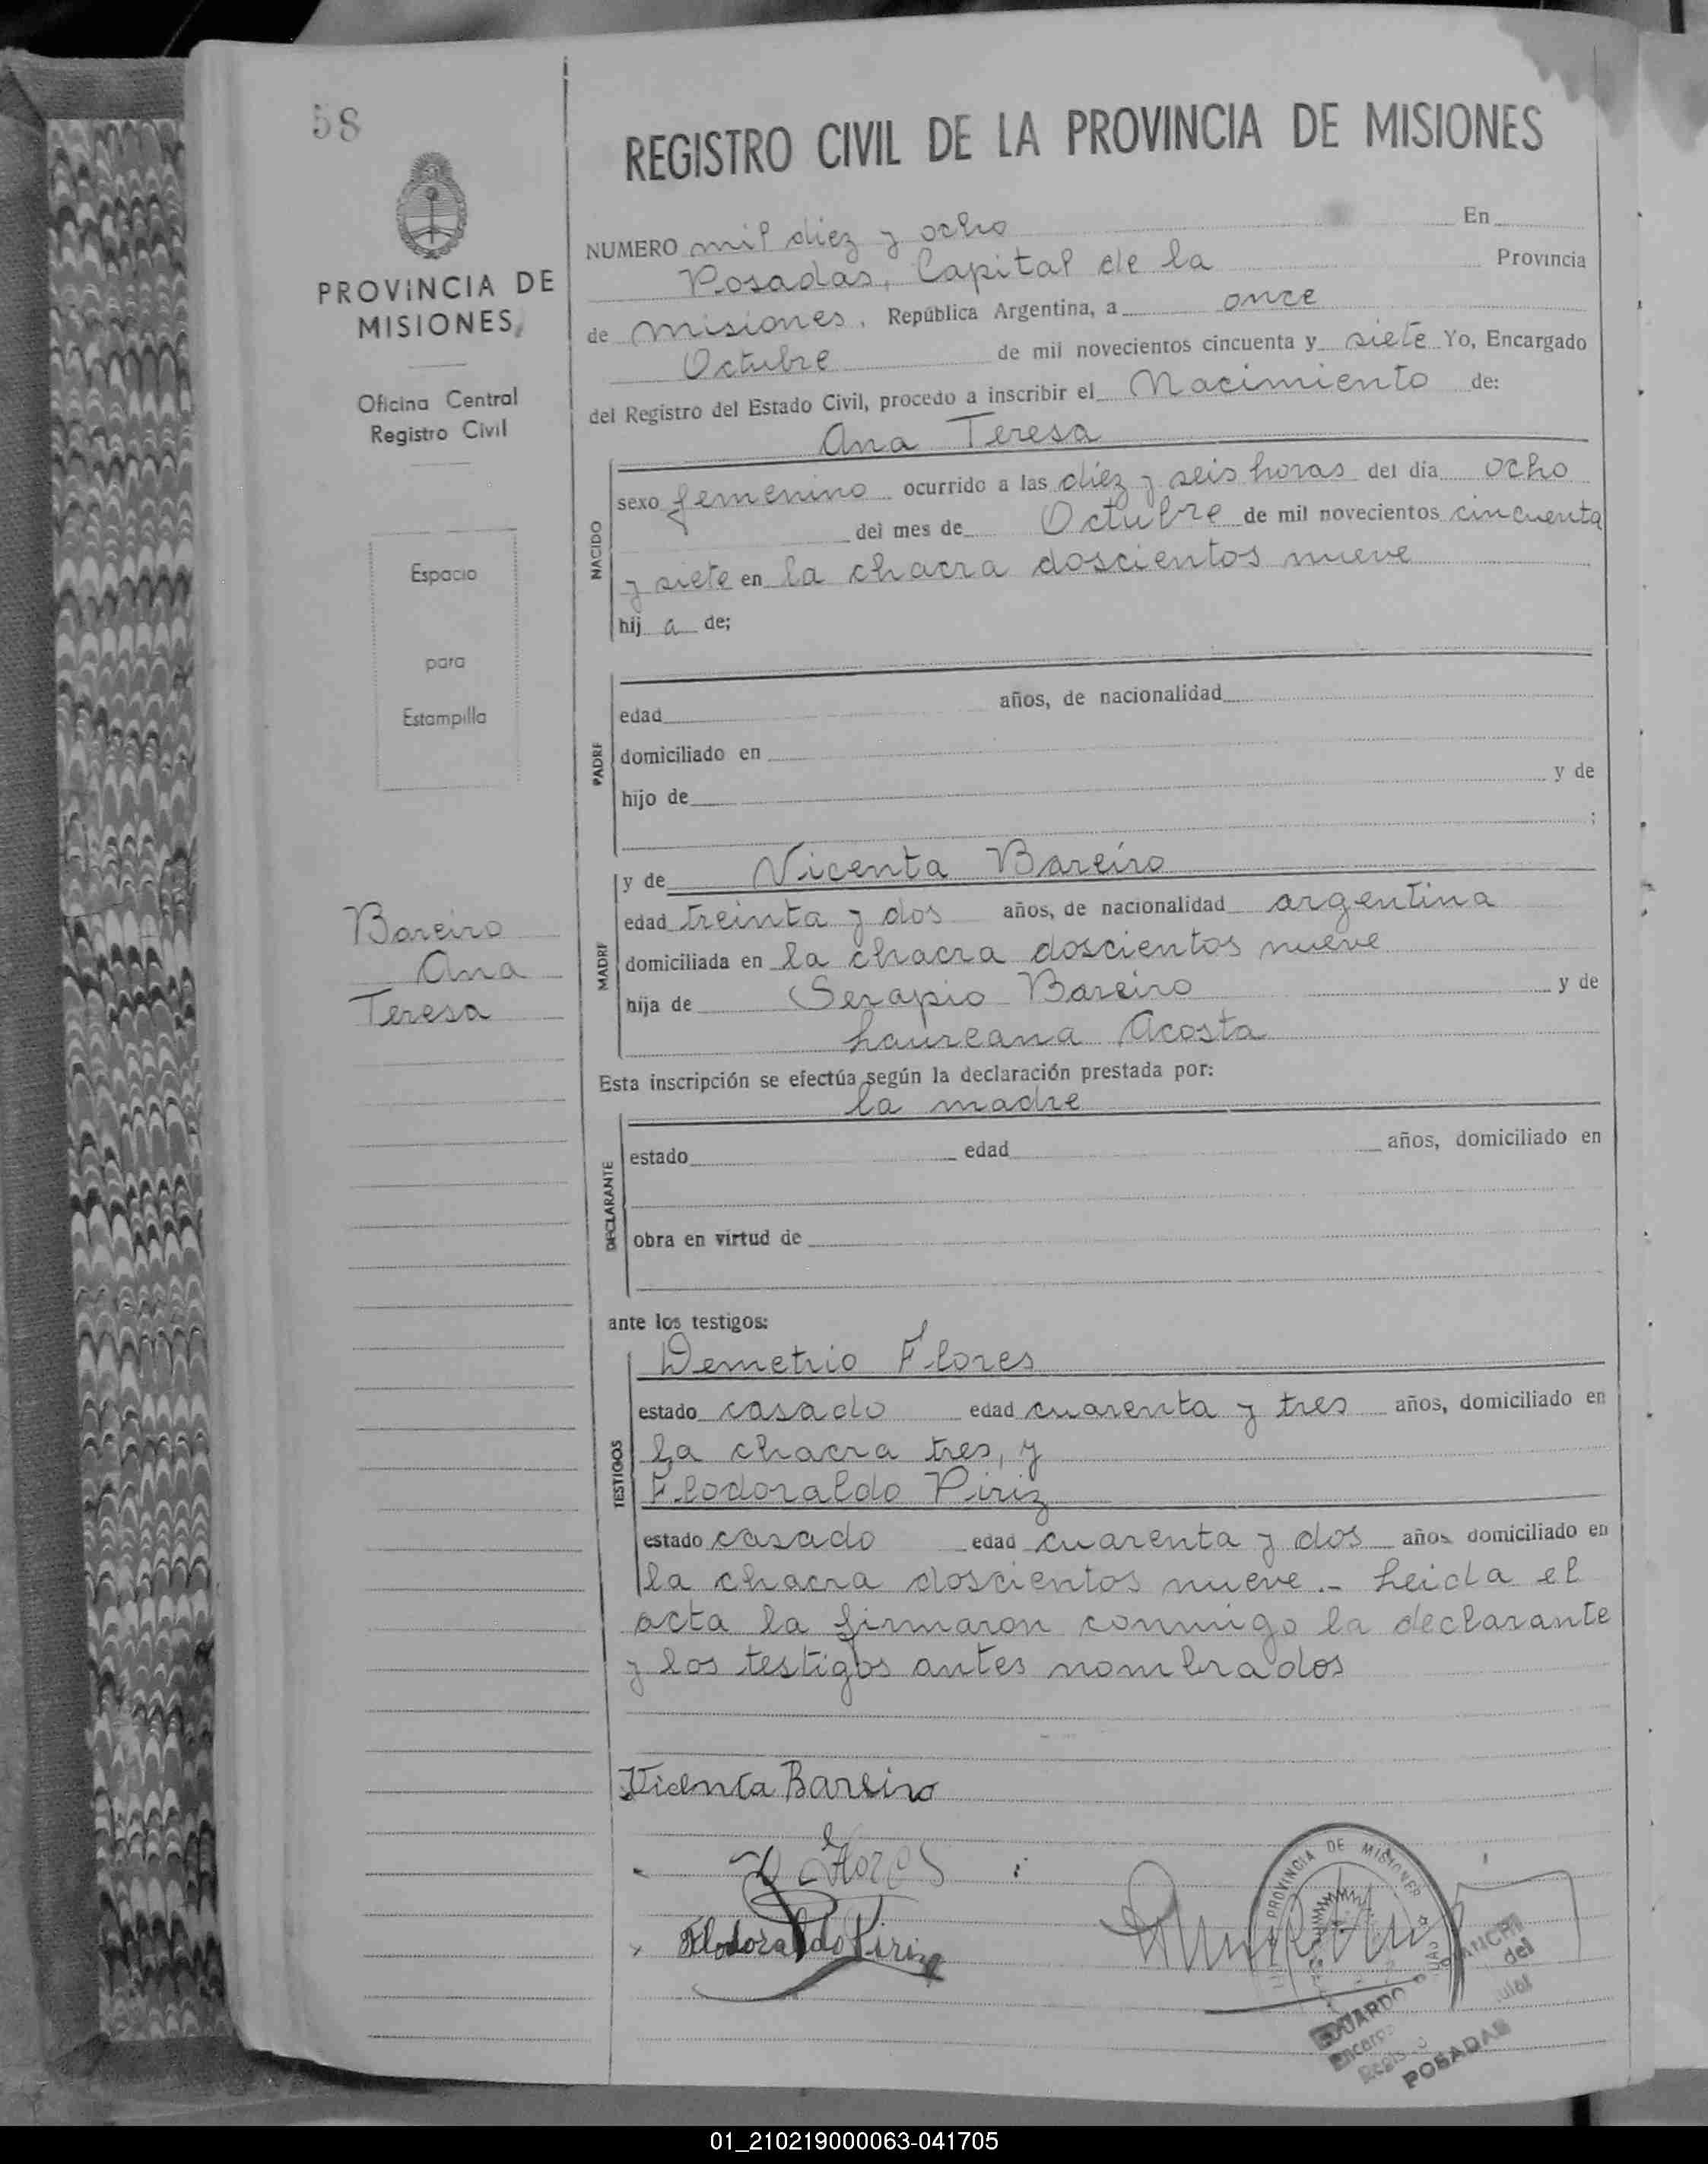 58
PROVINCIA DE
MISIONES
Oficina Central
Registro Civil
Espacio
para
Estampilla
Bareiro
Ana
Teresa
REGISTRO CIVIL DE LA PROVINCIA DE MISIONES
NUMERO mil diez y ocho En
Posadas, Capital de la Provincia
de Misiones, República Argentina, a once
Octubre de mil novecientos cincuenta y siete Yo, Encargado
del Registro del Estado Civil, procedo a inscribir el Nacimiento de:
Ana Teresa
NACIDO
sexo femenino ocurrido a las diez y seis horas del día ocho
del mes de Octubre de mil novecientos cincuenta
y siete en la chacra doscientos nueve
hij a de;
PADRE
edad años, de nacionalidad
domiciliado en
hijo de y de
;
MADRE
y de Vicenta Bareiro
edad treinta y dos años, de nacionalidad argentina
domiciliada en la chacra doscientos nueve
hija de Serapio Bareiro y de
Laureana Acosta
Esta inscripción se efectúa según la declaración prestada por:
la madre
DECLARANTE
estado edad años, domiciliado en
obra en virtud de
ante los testigos:
TESTIGOS
Demetrio Flores
estado casado edad cuarenta y tres años, domiciliado en
la chacra tres, y
Flodoraldo Piriz
estado casado edad cuarenta y dos años domiciliado en
la chacra doscientos nueve.- Leida el
acta la firmaron conmigo la declarante
y los testigos antes nombrados
Vicenta Bareiro
Flores
Flodoraldo Piriz
PROVINCIA DE MISIONES
EDUARDO
del
POSADAS
01_210219000063-041705